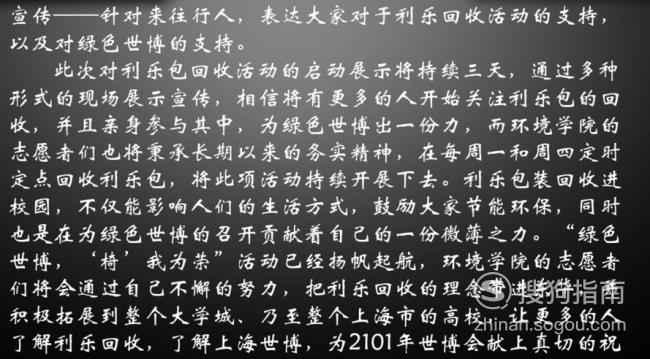 宣传——针对来往行人，表达大家对于利乐回收活动的支持，
以及对绿色世博的支持。
此次对利乐包回收活动的启动展示将持续三天，通过多种
形式的现场展示宣传，相信将有更多的人开始关注利乐包的回
收，并且亲身参与其中，为绿色世博出一份力，而环境学院的
志愿者们也将秉承长期以来的务实精神，在每周一和周四定时
定点回收利乐包，将此项活动持续开展下去。利乐包装回收进
校园，不仅能影响人们的生活方式，鼓励大家节能环保，同时
也是在为绿色世博的召开贡献着自己的一份微薄之力。“绿色
世博，‘椅’我为荣”活动已经扬帆起航，环境学院的志愿者
们将会通过自己不懈的努力，把利乐回收的理念带进
积极拓展到整个大学城、乃至整个上海市的高校，让更多的人
了解利乐回收，了解上海世博，为2101年世博会献上真切的祝
搜狗指南
zhinan.sogou.com